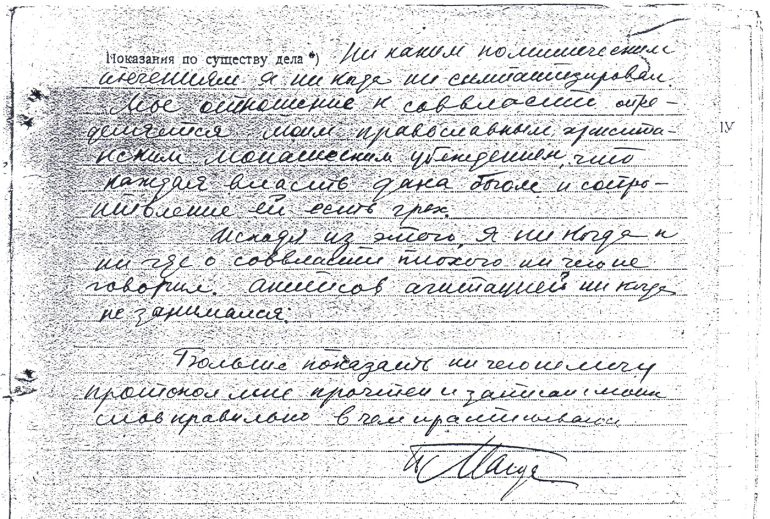 Показания по существу дела *) Ни каким политическим
течениям я ни когда ни симпатизировал.
Мое отношение к соввласти опре-
деляется моим православным христиа-
нским монашеским убеждением, что
каждая власть дана богом и сопро-
тивление ей есть грех.
Исходя из этого, я ни когда и
ни где о соввласти плохого ни чего не
говорил. антисов агитацией ни когда
не занимался.
Больше показать ни чего не могу
протокол мне прочтен и записан с моих
слов правильно в чем и расписываюсь
IV